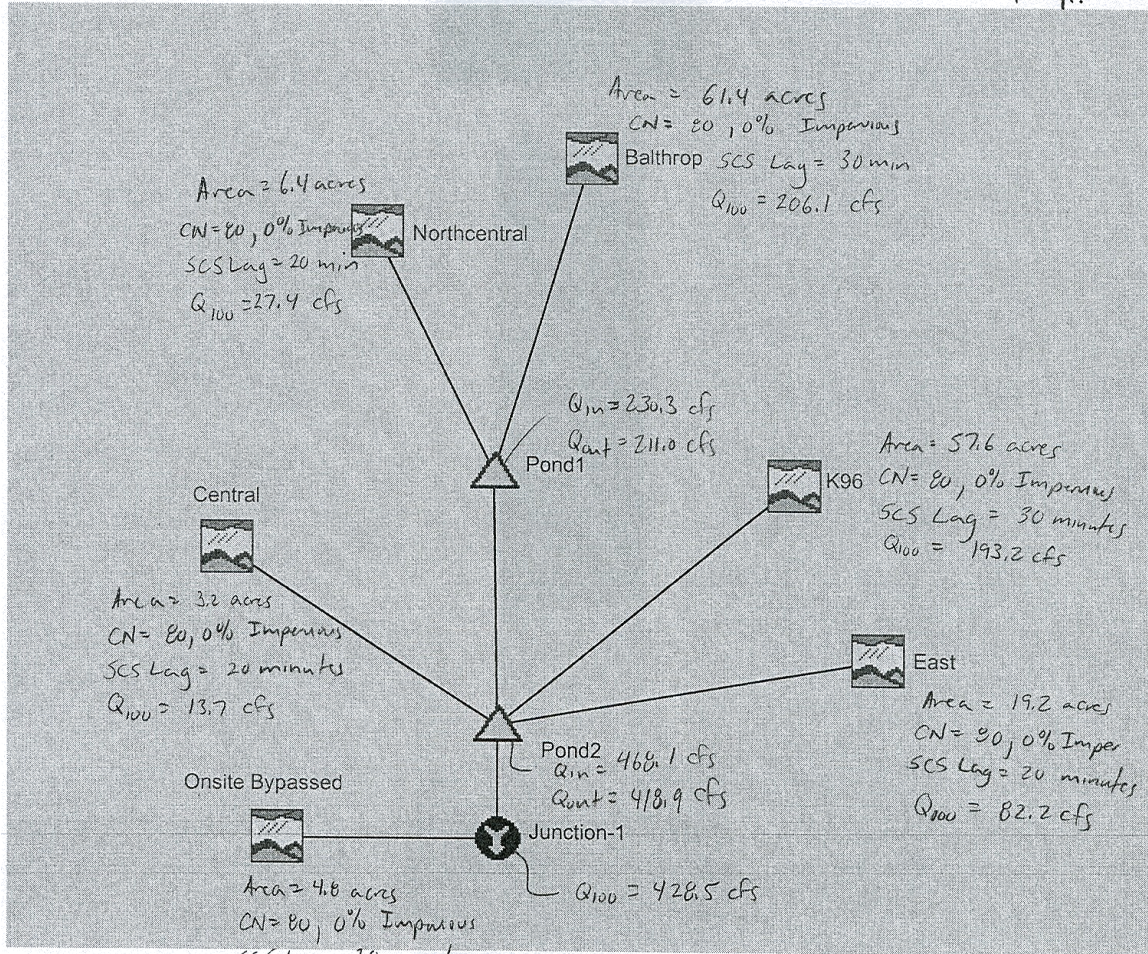 Area = 61.4 acres
CN = 80, 0% Impervious
Balthrop
SCS Lag = 30 min
Q100 = 206.1 cfs
Area = 6.4 acres
CN = 80, 0% Impervious
Northcentral
SCS Lag = 20 min
Q100 = 27.4 cfs
Qin = 230.3 cfs
Qout = 211.0 cfs
Pond1
Area = 57.6 acres
K96
CN = 80, 0% Impervious
SCS Lag = 30 minutes
Q100 = 193.2 cfs
Central
Area = 3.2 acres
CN = 80, 0% Impervious
SCS Lag = 20 minutes
Q100 = 13.7 cfs
East
Area = 19.2 acres
CN = 80, 0% Imper
SCS Lag = 20 minutes
Q100 = 82.2 cfs
Pond2
Qin = 468.1 cfs
Qout = 418.9 cfs
Onsite Bypassed
Junction-1
Q100 = 428.5 cfs
Area = 4.8 acres
CN = 80, 0% Impervious